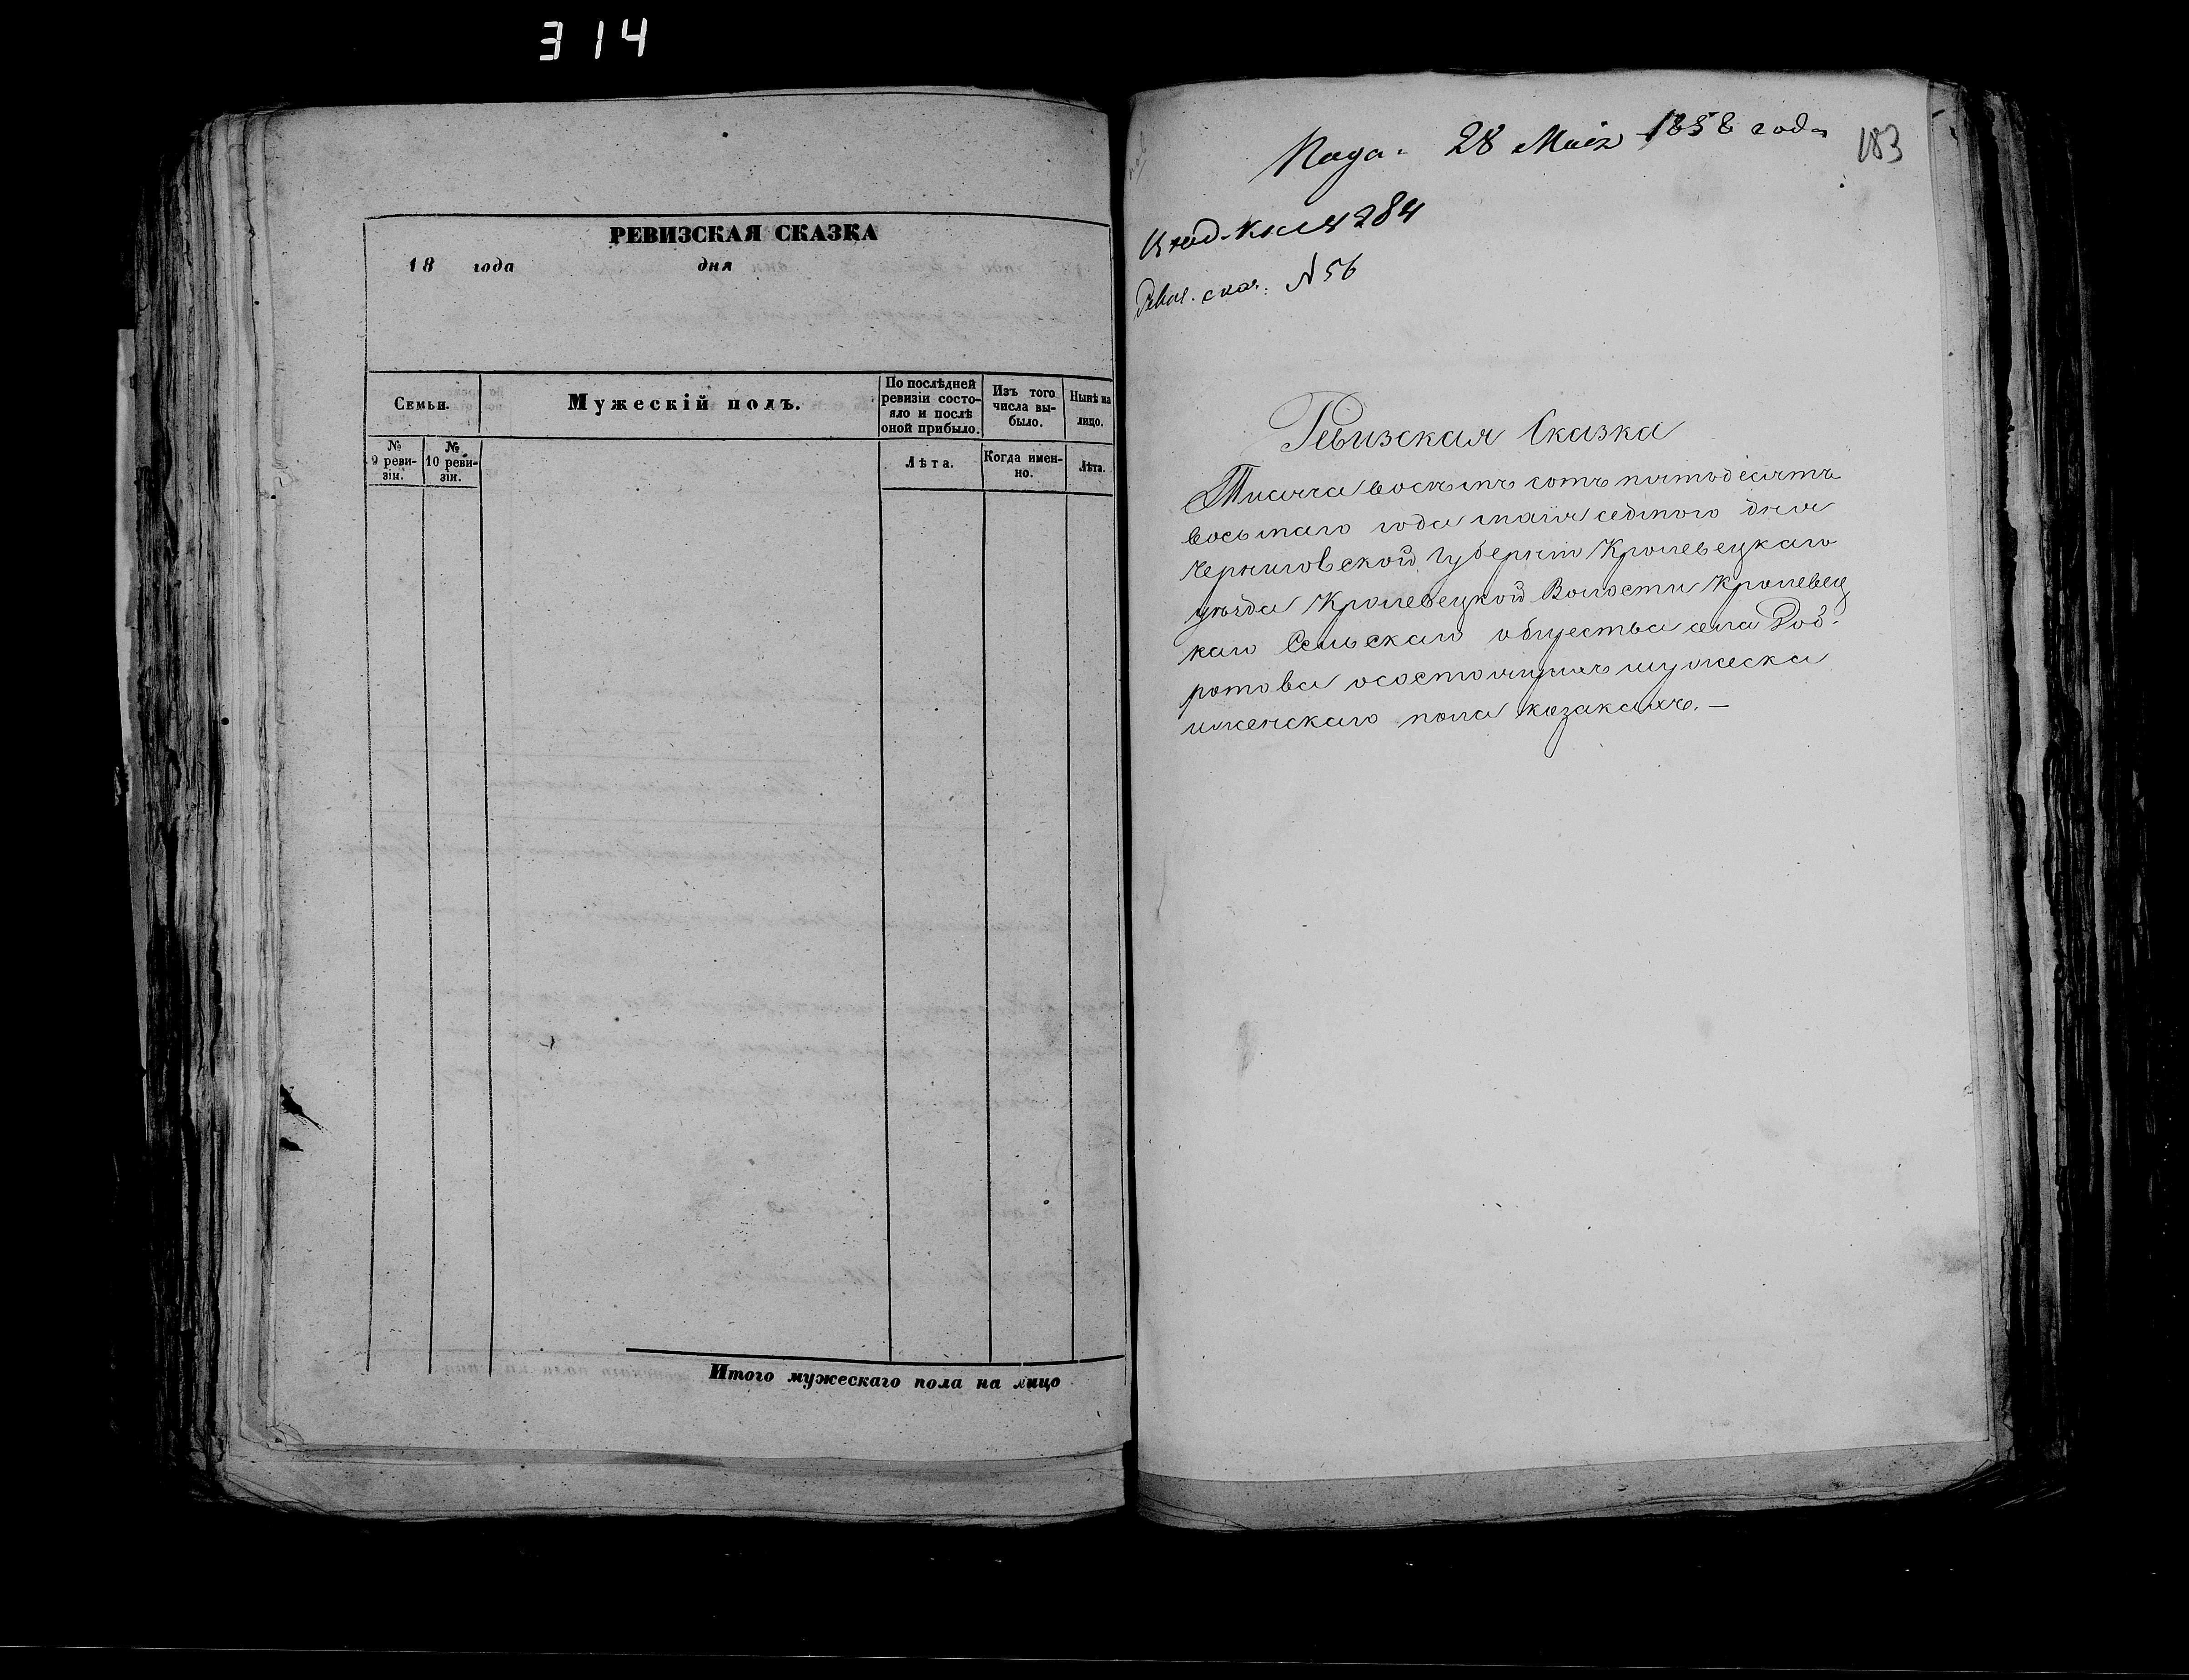 314
РЕВИЗСКАЯ СКАЗКА
18 года дня
Семьи.
Мужескій полъ.
По послѣдней ревизіи состояло и послѣ оной прибыло.
Изъ того числа выбыло.
Нынѣ на лицо.
№ 9 ревизіи.
№ 10 ревизіи.
Лѣта.
Когда именно.
Лѣта.
Итого мужескаго пола на лицо
Пода. 28 Маія 1858 года
183
284
Ревиз. сказ. N 56
Ревизская Сказка
Тисяча восемъ сотъ пятодесятъ
восьмаго года маія седмого дня
Черниговской Губерніи Кролевецкаго
уѣзда Кролевецкой Волости Кролевец
каго Сельскаго общества села
ротова осостоящихъ мужеска
иженскаго пола козакахъ. —